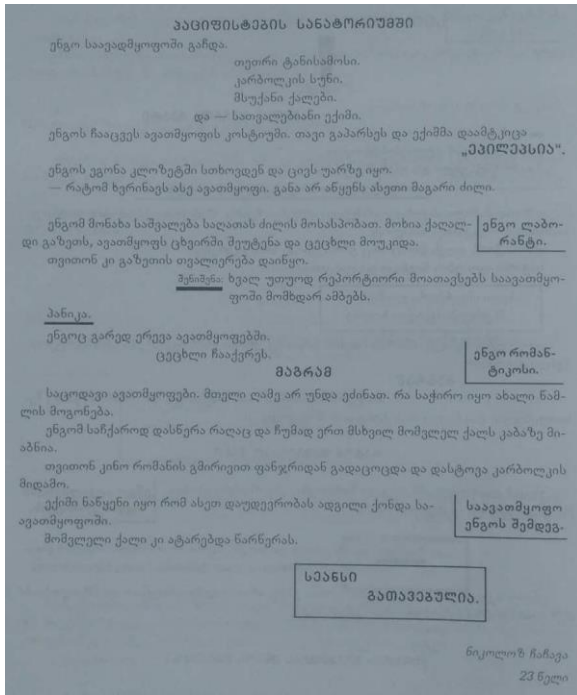 ᲞᲐᲪᲘᲤᲘᲡᲢᲔᲑᲘᲡ ᲡᲐᲜᲐᲢᲝᲠᲘᲣᲛᲨᲘ
ენგო საავადმყოფოში გაჩდა.
თეთრი ტანისამოსი.
კარბოლკის სუნი.
მსუქანი ქალები.
და — სათვალებიანი ექიმი.
ენგოს ჩააცვეს ავათმყოფის კოსტიუმი. თავი გაპარსეს და ექიმმა დაამტკიცა
„ᲔᲞᲘᲚᲔᲞᲡᲘᲐ".
ენგოს ეგონა კლოზეტში სთხოვდენ და ცივს უარზე იყო.
— რატომ ხვრინავს ასე ავათმყოფი. განა არ აწყენს ასეთი მაგარი ძილი.
ენგომ მონახა საშვალება საღათას ძილის მოსასპობათ. მოხია ქაღალ-
დი გაზეთს, ავათმყოფს ცხვირში შეუტენა და ცეცხლი მოუკიდა.
ენგო ლაბო-
რანტი.
თვითონ კი გაზეთის თვალიერება დაიწყო.
შენიშვნა. ხვალ უთუოდ რეპორტიორი მოათავსებს საავათმყო-
ფოში მომხდარ ამბებს.
პანიკა.
ენგოც გარედ ერევა ავათმყოფებში.
ცეცხლი ჩააქვრეს.
ენგო რომან-
ტიკოსი.
ᲛᲐᲒᲠᲐᲛ
საცოდავი ავათმყოფები. მთელი ღამე არ უნდა ეძინათ. რა საჭირო იყო ახალი წამ-
ლის მოგონება.
ენგომ საჩქაროდ დასწერა რაღაც და ჩუმად ერთ მსხვილ მომვლელ ქალს კაბაზე მი-
აბნია.
თვითონ კინო რომანის გმირივით ფანჯრიდან გადაცოცდა და დასტოვა კარბოლკის
მიდამო.
ექიმი ნაწყენი იყო რომ ასეთ დაუდევრობას ადგილი ქონდა სა-
ავათმყოფოში.
საავათმყოფო
ენგოს შემდეგ.
მომვლელი ქალი კი ატარებდა წარწერას.
ᲡᲔᲐᲜᲡᲘ
ᲒᲐᲗᲐᲕᲔᲑᲣᲚᲘᲐ.
ნიკოლოზ ჩაჩავა
23 წელი